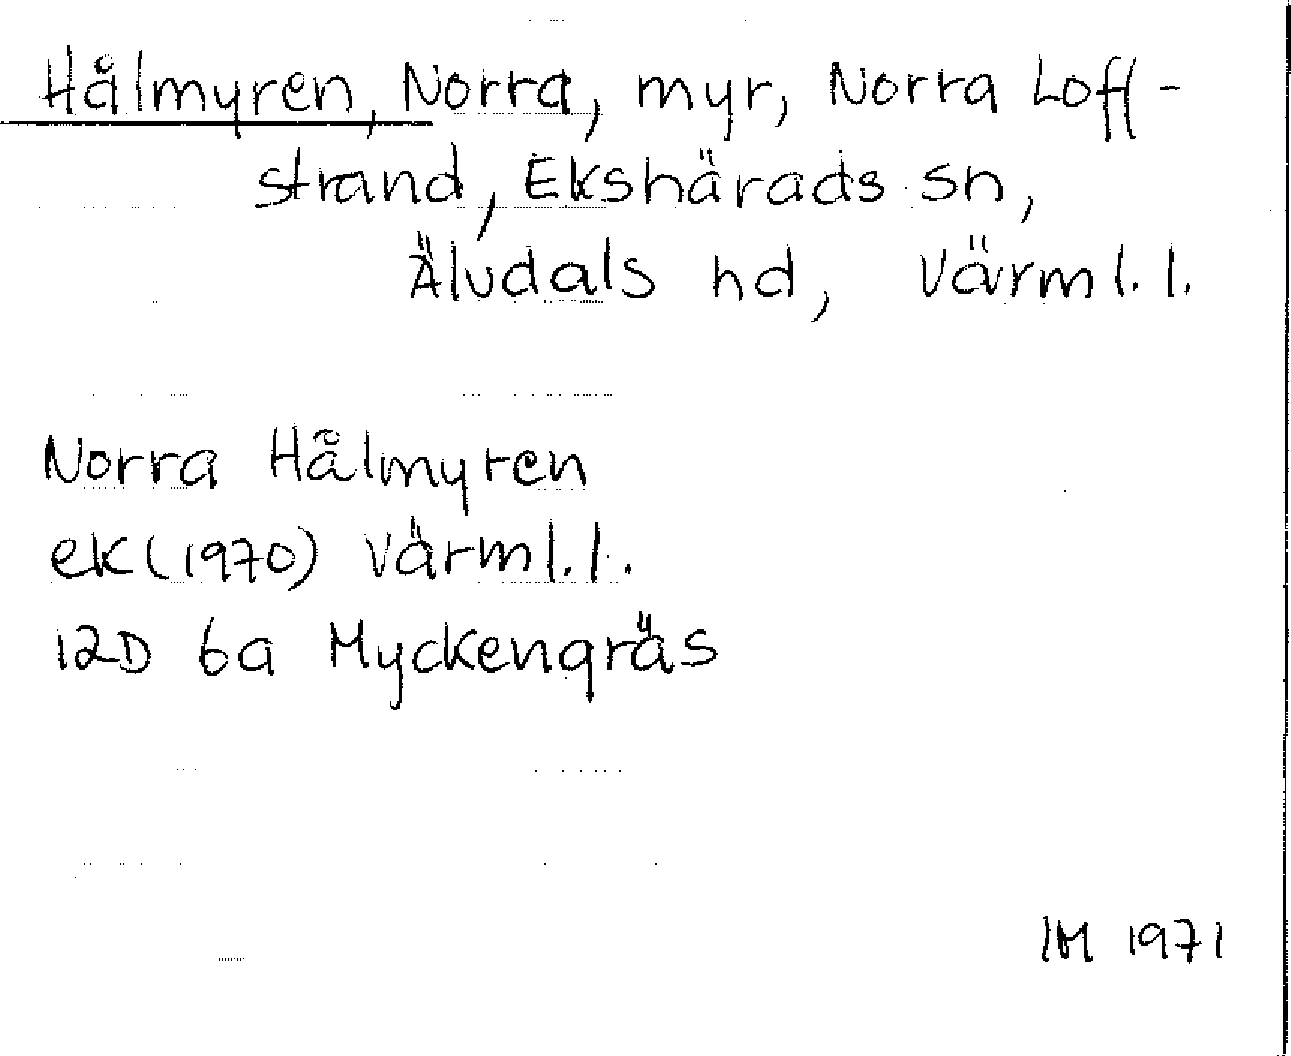 Hålmyren, Norra, myr, Norra Loff-
strand, Ekshärads sn,
Älvdals hd, Värml. l.
Norra Hålmyren
ek (1970) Värml. l.
12D 6a Myckengräs
IM 1971